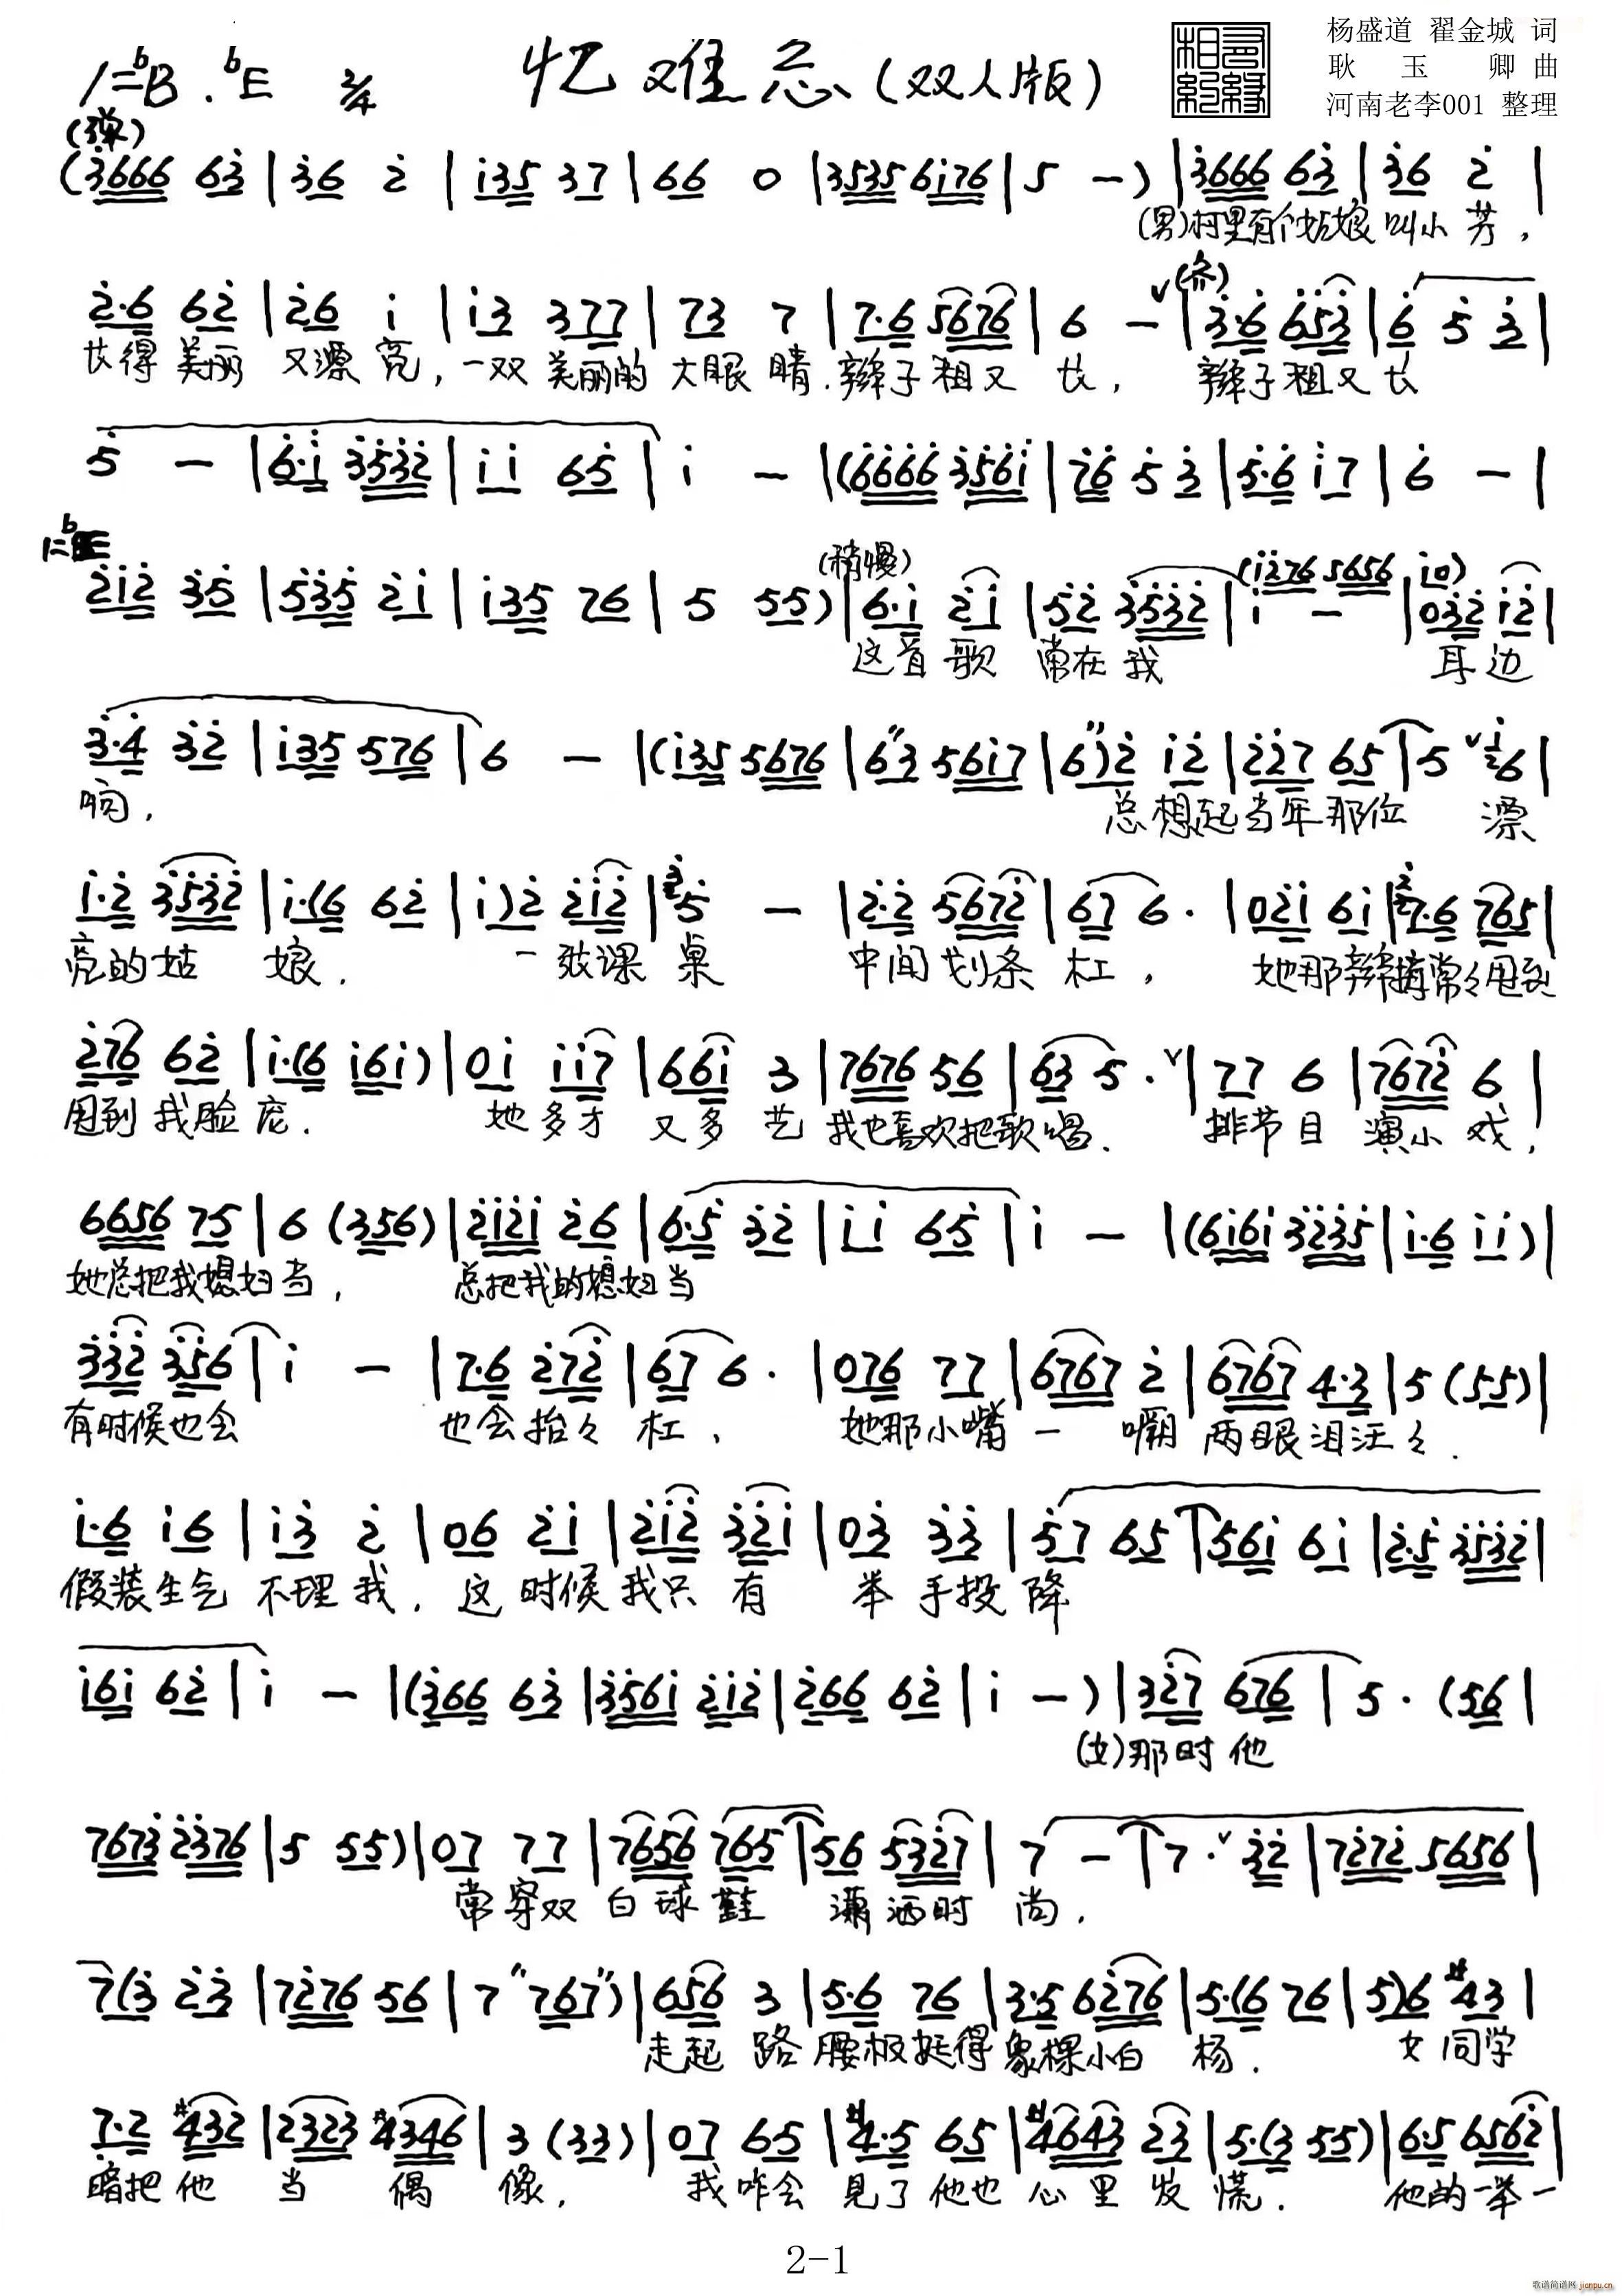 杨盛道 翟金城 词
耿玉卿 曲
河南老李001 整理
1=♭B.♭E 2/4 忆难忘(双人版)
(弹)
(3666 63|36 2|135 37|66 0|3535 6176|5 -)|3666 63|36 2|
(男)村里有个姑娘 叫小芳,
(齐)
2·6 62|26 1|13 377|73 7|7·6 5676|6 -|3·6 653|6 5 3|
长得美丽 又漂亮,一双美丽的大眼睛.辫子粗又长, 辫子粗又长
5 -|6·1 3532|11 65|1 -|(6666 3561|76 5 3|5·6 17|6 -|
1=♭E
(稍慢) (1276 5656 10)
212 35|535 21|135 76|5 55)|6·1 21|52 3532|1 -|032 12|
这首歌 常在我 耳边
3·4 32|135 576|6 -|(135 5676|6"3 5617|6")2 12|227 65|5 6|
响, 总想起当年那位 漂
1·2 3532|1·(6 62|1)2 212|5 -|2·2 5672|67 6·|021 61|7·6 765|
亮的姑娘. 一张课桌 中间划条杠, 她那辫梢常々甩到
276 62|1·(6 161)|01 117|661 3|7676 56|63 5·|77 6|7672 6|
甩到我脸庞. 她多才又多艺 我也喜欢把歌唱. 排节目 演小戏,
6656 75|6 (356)|2121 26|6·5 32|11 65|1 -|(6161 3235|1·6 11)|
她总把我媳妇当, 总把我的媳妇当
332 356|1 -|7·6 272|67 6·|076 77|6767 2|6767 4·3|5 (55)|
有时候也会 也会抬々杠, 她那小嘴一噘 两眼泪汪々.
1·6 16|13 2|06 21|212 321|03 33|57 65|561 61|2·5 3532|
假装生气 不理我, 这时候我只有 举手投降
161 62|1 -|(366 63|3561 212|266 62|1 -)|327 676|5·(56|
(女)那时他
7673 2376|5 55)|07 77|7656 765|56 5327|7 -|7·32|7272 5656|
常穿双白球鞋 潇洒时尚.
7(3 23|7276 56|7 "767")|656 3|5·6 76|3·5 6276|5·(6 76|5)6 #43|
走起路腰板挺得象棵小白杨. 女同学
7·2 #432|2323 #4346|3 (33)|07 65|#4·5 65|#4643 23|5·(3 55)|6·5 6562|
暗把他当偶像, 我咋会见了他也心里发慌. 他的一举一
2-1
歌谱简谱网 jianpu.cn